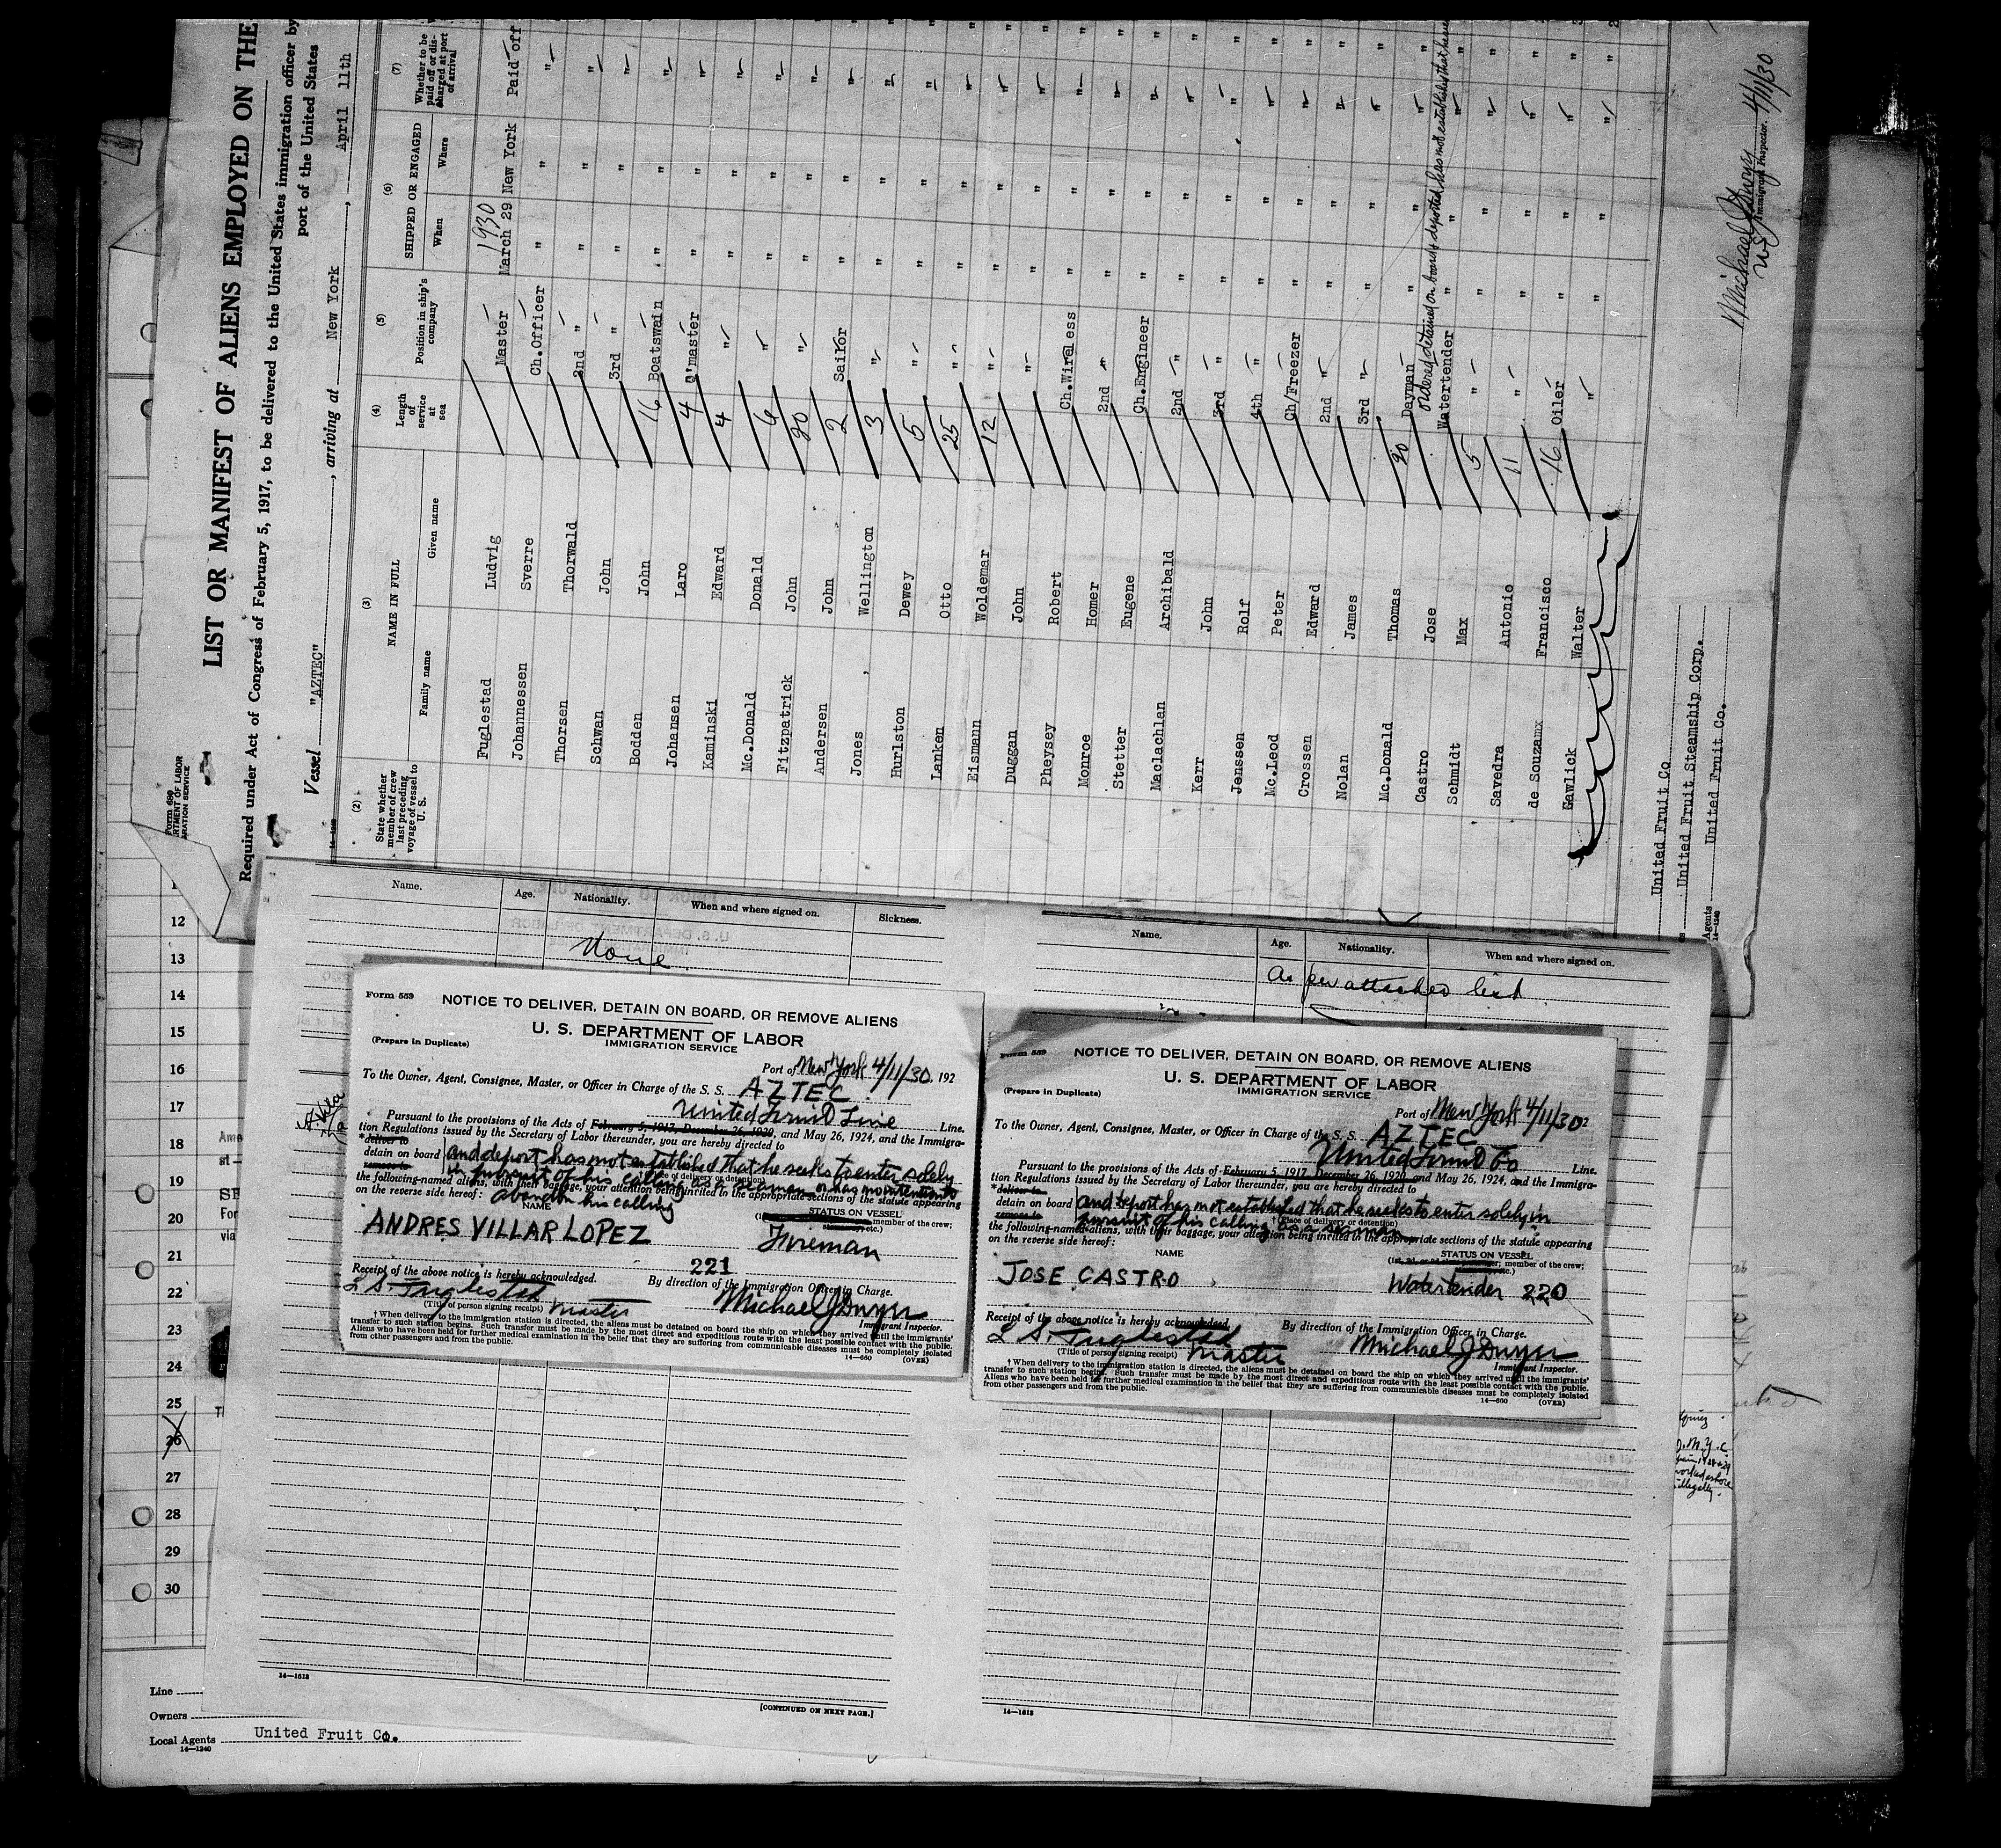 Form 690
LIST OR MANIFEST OF ALIENS EMPLOYED ON THE
Required under Act of Congress of February 5, 1917, to be delivered to the United States immigration officer by
port of the United States
Vessel "AZTEC", arriving at New York, April 11th
(2) (3) (4) (5) (6) (7)
State whether member of crew last preceding voyage of vessel to U. S.
NAME IN FULL
Family name Given name
Length of service at sea
Position in ship's company
SHIPPED OR ENGAGED
When Where
Whether to be paid off or discharged at port of arrival
1930
Fuglestad Ludvig Master March 29 New York Paid off
Johannessen Sverre Ch.Officer " " "
Thorsen Thorwald 2nd " " " "
Schwan John 3rd " " " "
Bodden John 16 Boatswain " " "
Johansen Laro 4 Q'master " " "
Kaminski Edward 4 " " " "
Mc.Donald Donald 6 " " " "
Fitzpatrick John 20 " " " "
Andersen John 2 Sailor " " "
Jones Wellington 3 " " " "
Hurlston Dewey 5 " " " "
Lanken Otto 25 " " " "
Eismann Woldemar 12 " " " "
Duggan John " " " "
Pheysey Robert Ch.Wireless " " "
Monroe Homer 2nd " " " "
Stetter Eugene Ch.Engineer " " "
Maclachlan Archibald 2nd " " " "
Kerr John 3rd " " " "
Jenssen Rolf 4th " " " "
Mc.Leod Peter Ch/Freezer " " "
Crossen Edward 2nd " " " "
Nolan James 3rd " " " "
Mc.Donald Thomas 20 Dayman " " "
Castro Jose Watertender " " "
ordered detained on board & deported has not establishes that he
Schmidt Max 5 " " " "
Savedra Antonio 11 " " " "
de Souza Francisco 16 Oiler " " "
Gawlick Walter " " " "
United Fruit Co
United Fruit Steamship Corp.
Agents United Fruit Co.
14—1240
Michael J Dwyer 4/11/30
Immigrant Inspector.
12
13
14
15
16
17
18
19
20
21
22
23
24
25
26
27
28
29
30
Line
Owners
Local Agents United Fruit Co.
14—1240
Name. Age. Nationality. When and where signed on. Sickness.
None
14—1613
[CONTINUED ON NEXT PAGE.]
Name. Age. Nationality. When and where signed on.
As per attached list
14—1613
Form 559
NOTICE TO DELIVER, DETAIN ON BOARD, OR REMOVE ALIENS
U. S. DEPARTMENT OF LABOR
IMMIGRATION SERVICE
(Prepare in Duplicate)
Port of New York 4/11/30, 192
To the Owner, Agent, Consignee, Master, or Officer in Charge of the S. S. AZTEC
United Fruit Line Line.
Pursuant to the provisions of the Acts of February 5, 1917, December 26, 1920, and May 26, 1924, and the Immigra-
tion Regulations issued by the Secretary of Labor thereunder, you are hereby directed to
*deliver to
detain on board and deport has not established that he seeks to enter solely
remove to in pursuit of his calling as a seaman or has no intention to
abandon his calling
the following-named aliens, with their baggage, your attention being invited to the appropriate sections of the statute appearing
on the reverse side hereof:
NAME STATUS ON VESSEL
member of the crew;
ANDRES VILLAR LOPEZ Fireman
221
Receipt of the above notice is hereby acknowledged. By direction of the Immigration Officer in Charge.
L S. Fuglestad Michael J Dwyer
(Title of person signing receipt) Master Immigrant Inspector.
† When delivery to the immigration station is directed, the aliens must be detained on board the ship on which they arrived until the immigrants'
transfer to such station begins. Such transfer must be made by the most direct and expeditious route with the least possible contact with the public.
Aliens who have been held for further medical examination in the belief that they are suffering from communicable diseases must be completely isolated
from other passengers and from the public.
14—660 (OVER)
Form 559
NOTICE TO DELIVER, DETAIN ON BOARD, OR REMOVE ALIENS
U. S. DEPARTMENT OF LABOR
IMMIGRATION SERVICE
(Prepare in Duplicate)
Port of New York 4/11/30 2
To the Owner, Agent, Consignee, Master, or Officer in Charge of the S. S. AZTEC
United Fruit Co Line.
Pursuant to the provisions of the Acts of February 5, 1917, December 26, 1920, and May 26, 1924, and the Immigra-
tion Regulations issued by the Secretary of Labor thereunder, you are hereby directed to
deliver to
detain on board and deport has not established that he seeks to enter solely in
remove to pursuit of his calling as a seaman
† (Place of delivery or detention)
the following-named aliens, with their baggage, your attention being invited to the appropriate sections of the statute appearing
on the reverse side hereof:
NAME STATUS ON VESSEL
member of the crew;
JOSE CASTRO Watertender 220
Receipt of the above notice is hereby acknowledged. By direction of the Immigration Officer in Charge.
L S. Fuglestad Michael J Dwyer
(Title of person signing receipt) Master Immigrant Inspector.
† When delivery to the immigration station is directed, the aliens must be detained on board the ship on which they arrived until the immigrants'
transfer to such station begins. Such transfer must be made by the most direct and expeditious route with the least possible contact with the public.
Aliens who have been held for further medical examination in the belief that they are suffering from communicable diseases must be completely isolated
from other passengers and from the public.
14—660 (OVER)
illegally.